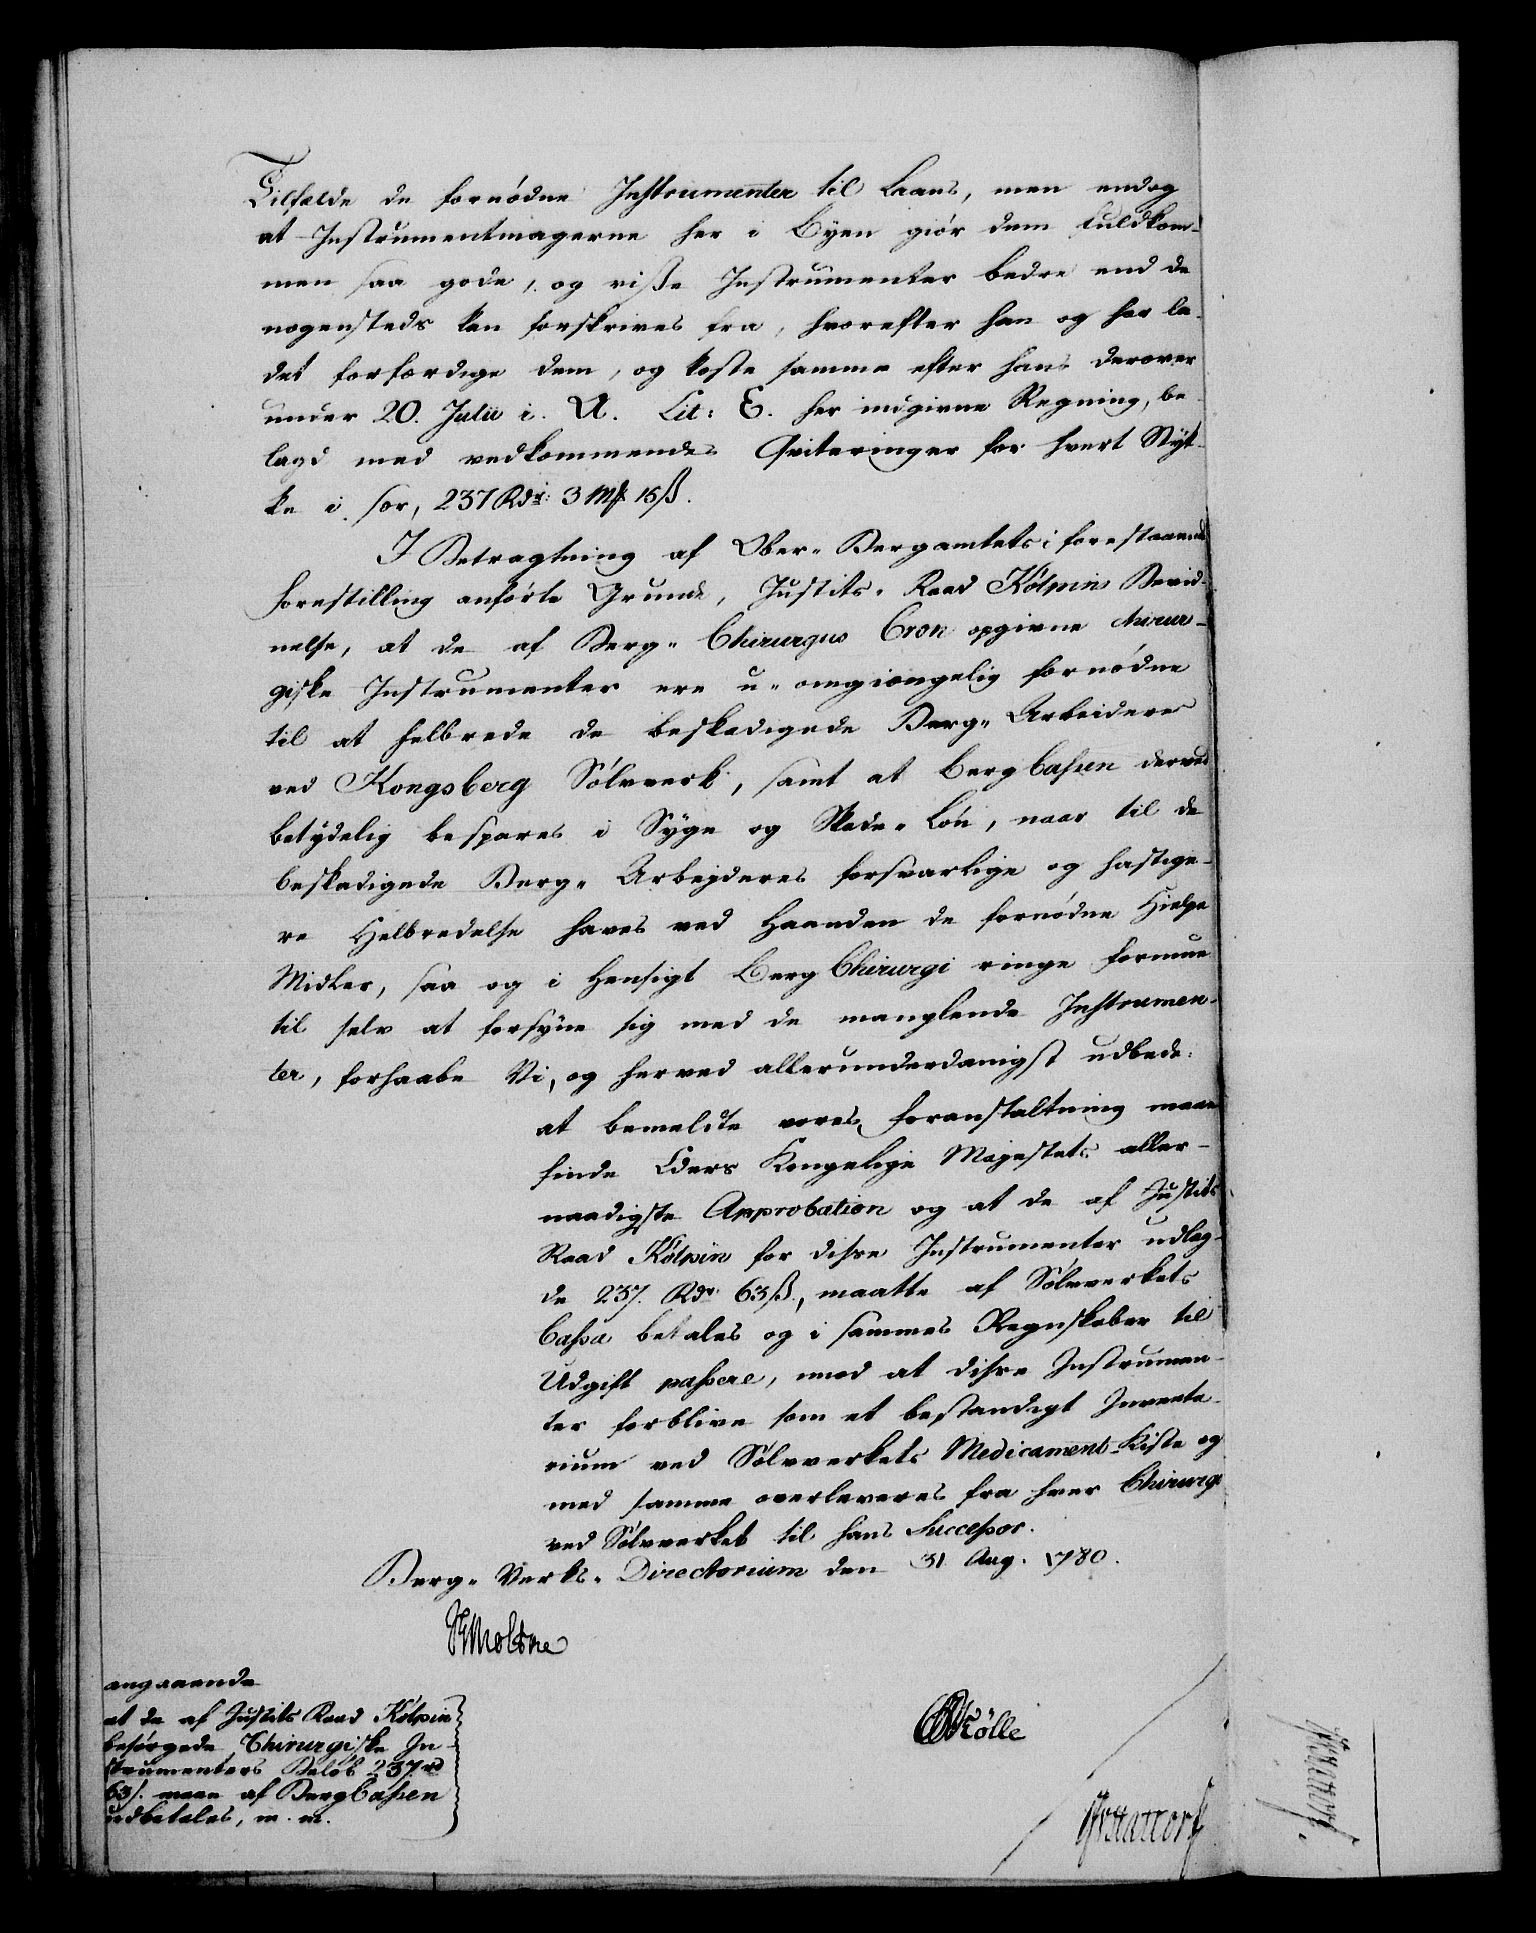 Tilfælde de fornødne Instrumenter til Laans, men endog
at Instrumentmagerne her i Byen giør dem fuldkom-
men saa gode, og visse Instrumenter bedre end de
nogensteds kan forskrives fra, hvorefter han og har la-
det forfærdige dem, og koste samme efter hans derover
under 20. Julii i. A. Lit: E. her indgivne Regning, be-
lagd med vedkommendes Qviteringer for hvert Styk-
ke i sær, 237 Rdr: 3 Mk 15 ß.
I Betragtning af Ober-Bergamtets i forestaaende
Forestilling anførte Grunde, Justits-Raad Kölpins Bevid-
nelse, at de af Berg-Chirurgus Cron opgivne chirur-
giske Instrumenter ere u-omgiængelig fornødne
til at helbrede de beskadigede Berg-Arbeidere
ved Kongsberg Sølvverk, samt at Berg Cassen derved
betydelig bespares i Syge og Skade-Løn, naar til de
beskadigede Berg-Arbejderes forsvarlige og hastige-
re Helbredelse haves ved Haanden de fornødne Hielpe
Midler, saa og i Hensigt Berg Chirurgi ringe Formue
til selv at forsyne sig med de manglende Instrumen-
ter, forhaabe Vi, og herved allerunderdanigst udbede:
at bemeldte vores Foranstaltning maae
finde Eders Kongelige Majestets aller-
naadigste Approbation og at de af Justits
Raad Kölpin for disse Instrumenter udlag-
de 237. Rdr 63 ß., maatte af Sølvverkets
Cassa betales og i sammes Regnskaber til
Udgift passere, mod at disse Instrumen-
ter forblive som et bestandigt Inventa-
rium ved Sølvverkets Medicament-Kiste og
med samme overleveres fra hver Chirurgo
ved Sølvverket til hans Successor.
Berg-Verks-Directorium den 31 Aug. 1780.
Moltke
angaaende
at de af Justits Raad Kölpin
besørgede Chirurgiske In-
strumenters Beløb 237 rd
63 ß. maae af Berg Cassen
udbetales, m. m.